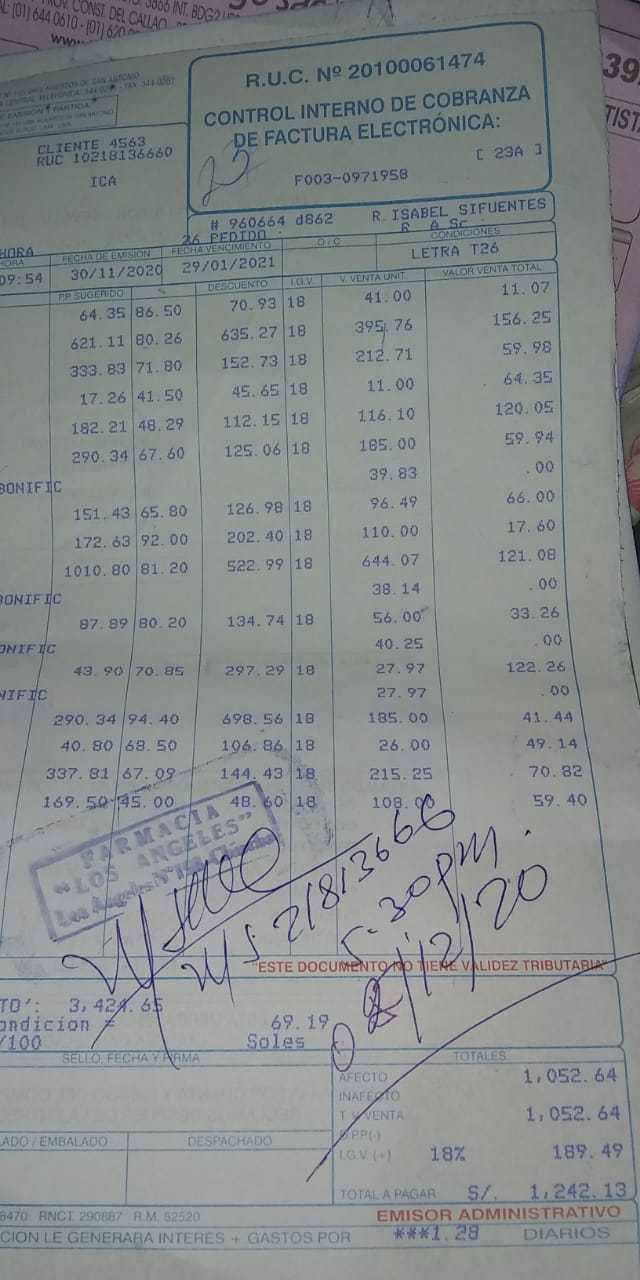 (01) 644 0610 - (01) 620
R.U.C. Nº 20100061474
CONTROL INTERNO DE COBRANZA
DE FACTURA ELECTRÓNICA:
[ 23A ]
F003-0971958
CLIENTE 4563
RUC 10218136660
ICA
# 960664 d862 R. ISABEL SIFUENTES
26 PEDIDO
HORA FECHA DE EMISION FECHA VENCIMIENTO O / C CONDICIONES
09:54 30/11/2020 29/01/2021 LETRA T26
P.P. SUGERIDO % DESCUENTO I.G.V V. VENTA UNIT. VALOR VENTA TOTAL
64.35 86.50 70.93 18 41.00 11.07
621.11 80.26 635.27 18 395.76 156.25
333.83 71.80 152.73 18 212.71 59.98
17.26 41.50 45.65 18 11.00 64.35
182.21 48.29 112.15 18 116.10 120.05
290.34 67.60 125.06 18 185.00 59.94
BONIFIC 39.83 .00
151.43 65.80 126.98 18 96.49 66.00
172.63 92.00 202.40 18 110.00 17.60
1010.80 81.20 522.99 18 644.07 121.08
BONIFIC 38.14 .00
87.89 80.20 134.74 18 56.00 33.26
ONIFIC 40.25 .00
43.90 70.85 297.29 18 27.97 122.26
NIFIC 27.97 .00
290.34 94.40 698.56 18 185.00 41.44
40.80 68.50 106.86 18 26.00 49.14
337.81 67.09 144.43 18 215.25 70.82
169.50 45.00 48.60 18 108.00 59.40
FARMACIA
"LOS ANGELES"
Los Angeles Nº
21813666
5:30 pm.
/12/20
"ESTE DOCUMENTO NO TIENE VALIDEZ TRIBUTARIA"
TO': 3,424.65
ondicion = 69.19
/100 Soles
SELLO, FECHA Y FIRMA TOTALES
AFECTO 1,052.64
INAFECTO
T. V. VENTA 1,052.64
D.P.P.(-)
I.G.V. (+) 18% 189.49
TOTAL A PAGAR S/. 1,242.13
LADO / EMBALADO DESPACHADO
8470. RNCT. 290887 R.M. 52520 EMISOR ADMINISTRATIVO
CION LE GENERARA INTERES + GASTOS POR ***1.28 DIARIOS